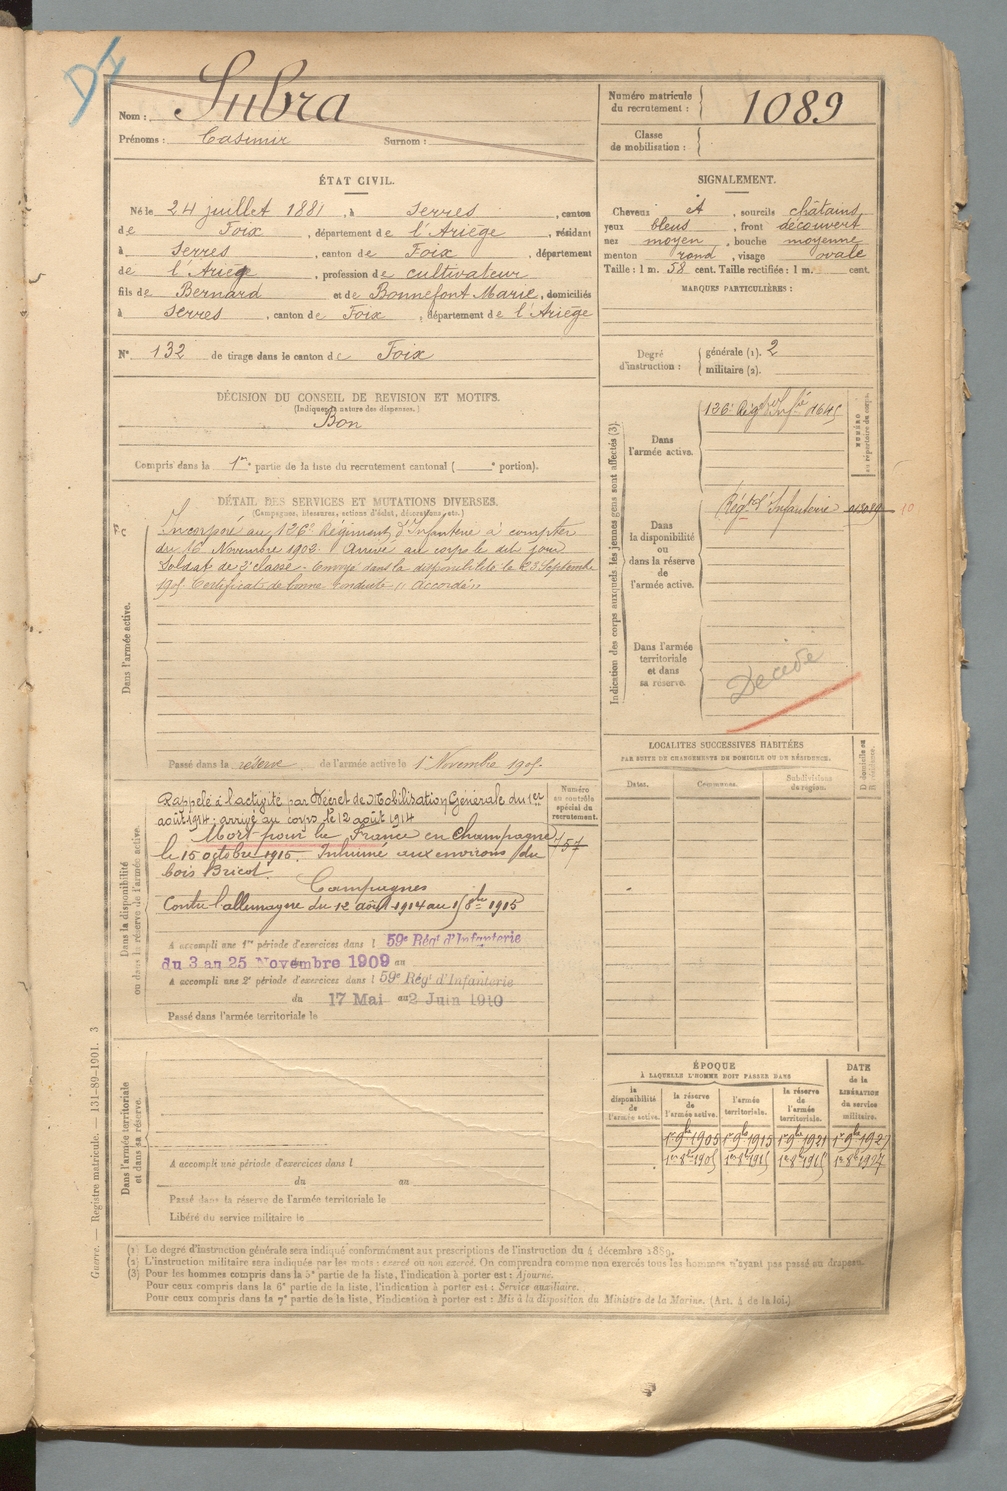 DI
Nom : Subra
Prénoms : Casimir Surnom :
Numéro matricule du recrutement : 1089
Classe de mobilisation :
ÉTAT CIVIL.
Né le 24 juillet 1881, à Serres, canton
de Foix, département de l'Ariège, résidant
à Serres, canton de Foix, département
de l'Ariège, profession de cultivateur
fils de Bernard et de Bonnefont Marie, domiciliés
à Serres, canton de Foix, département de l'Ariège
N° 132 de tirage dans le canton de Foix
SIGNALEMENT.
Cheveux et, sourcils châtains
yeux bleus, front découvert
nez moyen, bouche moyenne
menton rond, visage ovale
Taille : 1 m. 58 cent. Taille rectifiée : 1 m. cent.
MARQUES PARTICULIÈRES :
Degré d'instruction : générale (1). 2
militaire (2).
DÉCISION DU CONSEIL DE REVISION ET MOTIFS.
(Indiquer la nature des dispenses.)
Bon
Compris dans la 1re partie de la liste du recrutement cantonal ( e portion).
DÉTAIL DES SERVICES ET MUTATIONS DIVERSES.
(Campagnes, blessures, actions d'éclat, décorations, etc.)
Dans l'armée active.
Incorporé au 126e Régiment d'Infanterie à compter
du 16 Novembre 1902. Arrivé au corps le dit jour
Soldat de 2e classe. Envoyé dans la disponibilité le 23 Septembre
1905 Certificat de bonne conduite "Accordé"
Passé dans la réserve de l'armée active le 1er Novembre 1905.
Indication des corps auxquels les jeunes gens sont affectés (3).
NUMÉRO au répertoire du corps.
Dans l'armée active.
126e Régt d'Infie 1645
Dans la disponibilité ou dans la réserve de l'armée active.
Régt d'Infanterie
10
Dans l'armée territoriale et dans sa réserve.
Décédé
LOCALITÉS SUCCESSIVES HABITÉES
PAR SUITE DE CHANGEMENTS DE DOMICILE OU DE RÉSIDENCE.
Dates. Communes. Subdivisions de région. D. domicile ou R. résidence.
Dans la disponibilité ou dans la réserve de l'armée active.
Numéro au contrôle spécial du recrutement.
Rappelé à l'activité par Décret de Mobilisation Générale du 1er
août 1914; arrivé au corps le 12 août 1914
Mort pour la France en Champagne
le 15 octobre 1915. Inhumé aux environs du
bois Bricot.
Campagnes
Contre l'allemagne du 12 août 1914 au 15 8bre 1915
A accompli une 1re période d'exercices dans l 59e Régt d'Infanterie
du 3 au 25 Novembre 1909 au
A accompli une 2e période d'exercices dans l 59e Régt d'Infanterie
du 17 Mai au 2 Juin 1910
Passé dans l'armée territoriale le
Dans l'armée territoriale et dans sa réserve.
A accompli une période d'exercices dans l
du au
Passé dans la réserve de l'armée territoriale le
Libéré du service militaire le
ÉPOQUE
À LAQUELLE L'HOMME DOIT PASSER DANS
DATE de la LIBÉRATION du service militaire.
la disponibilité de l'armée active. la réserve de l'armée active. l'armée territoriale. la réserve de l'armée territoriale.
1er 9bre 1905 1er 9bre 1915 1er 9bre 1921 1er 9bre 1927
1er 8bre 1905 1er 8bre 1915 1er 8bre 1927
(1) Le degré d'instruction générale sera indiqué conformément aux prescriptions de l'instruction du 4 décembre 1889.
(2) L'instruction militaire sera indiquée par les mots : exercé ou non exercé. On comprendra comme non exercés tous les hommes n'ayant pas passé au drapeau.
(3) Pour les hommes compris dans la 5e partie de la liste, l'indication à porter est : Ajourné.
Pour ceux compris dans la 6e partie de la liste, l'indication à porter est : Service auxiliaire.
Pour ceux compris dans la 7e partie de la liste, l'indication à porter est : Mis à la disposition du Ministre de la Marine. (Art. 4 de la loi.)
Guerre. — Registre matricule. — 131-89-1901. 3